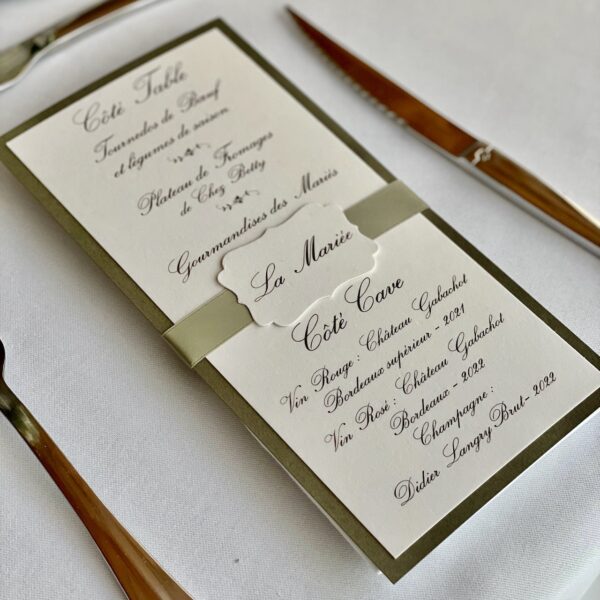 Côté Table
Tournedos de Bœuf
et légumes de saison
Plateau de Fromages
de Chez Betty
Gourmandises des Mariés
La Mariée
Côté Cave
Vin Rouge : Château Gabachot
Bordeaux supérieur - 2021
Vin Rosé : Château Gabachot
Bordeaux - 2022
Champagne :
Didier Langry Brut - 2022